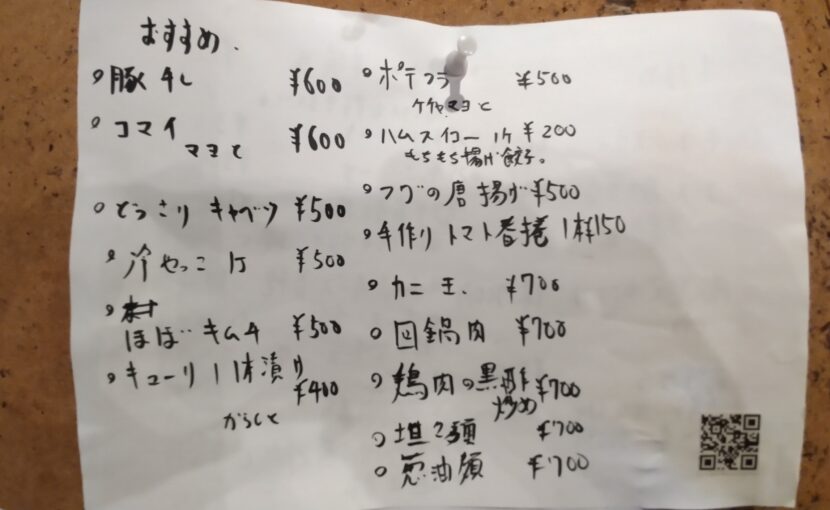 おすすめ.
豚キし ¥600
コマイ ¥600
マヨと
どっさり キャベツ ¥500
冷やっこ 1ケ ¥500
ほぼ キムチ ¥500
キューリ 1本漬け ¥400
からしと
ポテフラ ¥500
ケチャマヨと
ハムスイコー 1ケ ¥200
もちもち揚げ餃子。
フグの唐揚げ ¥500
手作り トマト春捲 1本¥150
カニ玉. ¥700
回鍋肉 ¥700
鶏肉の黒酢 ¥700
炒め
¥700
葱油 ¥700